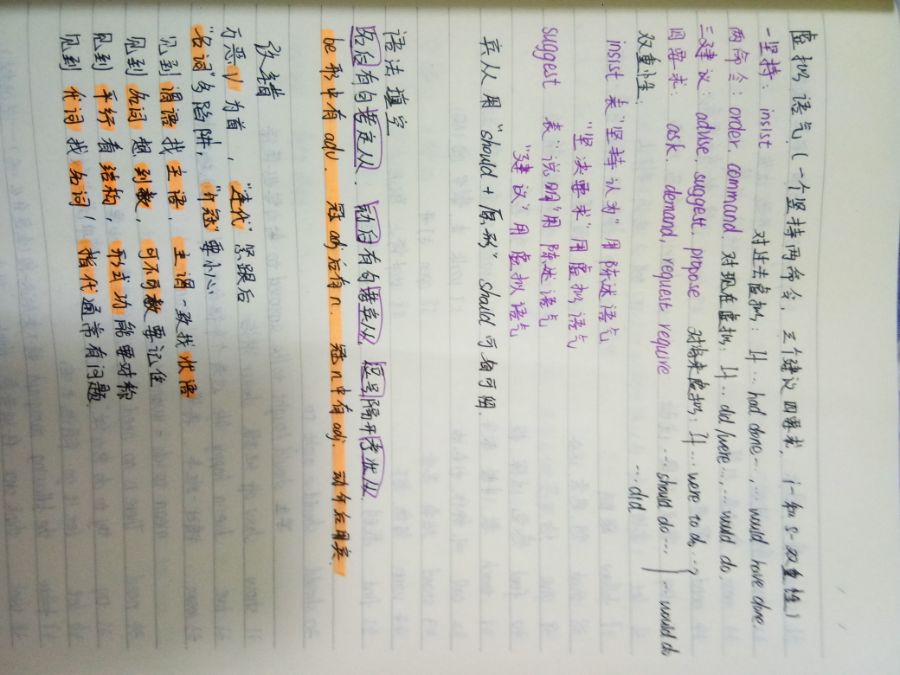 虚拟语气(一个坚持两命令,三个建议四要求,i-和s-双重性)
一坚持:insist 对过去虚拟:If … had done …, … would have done
两命令:order. command. 对现在虚拟:If … did/were …, … would do.
三建议:advise. suggest. propose 对将来虚拟:If … were to do …,
四要求:ask. demand, request require … should do … … would do
双重性: … did
insist 表"坚持认为"用陈述语气
"坚决要求"用虚拟语气
suggest 表"说明"用陈述语气
"建议"用虚拟语气
宾从用"should + 原形" should 可省可留.
语法填空
后有句考定从. 动后有句考宾从 逗号隔开考状从
be 形中有 adv. 冠 adj 后有 n. 冠 n 中有 adj. 动介后用宾.
改错
万恶 v 为首,"连代"紧跟后
"名词"多陷阱,"介冠"要小心
见到谓语找主语,主谓一致找状语
见到名词想到数,可不可数要记住
见到平行看结构,形式功能要对称
见到代词找名词,指代通常有问题